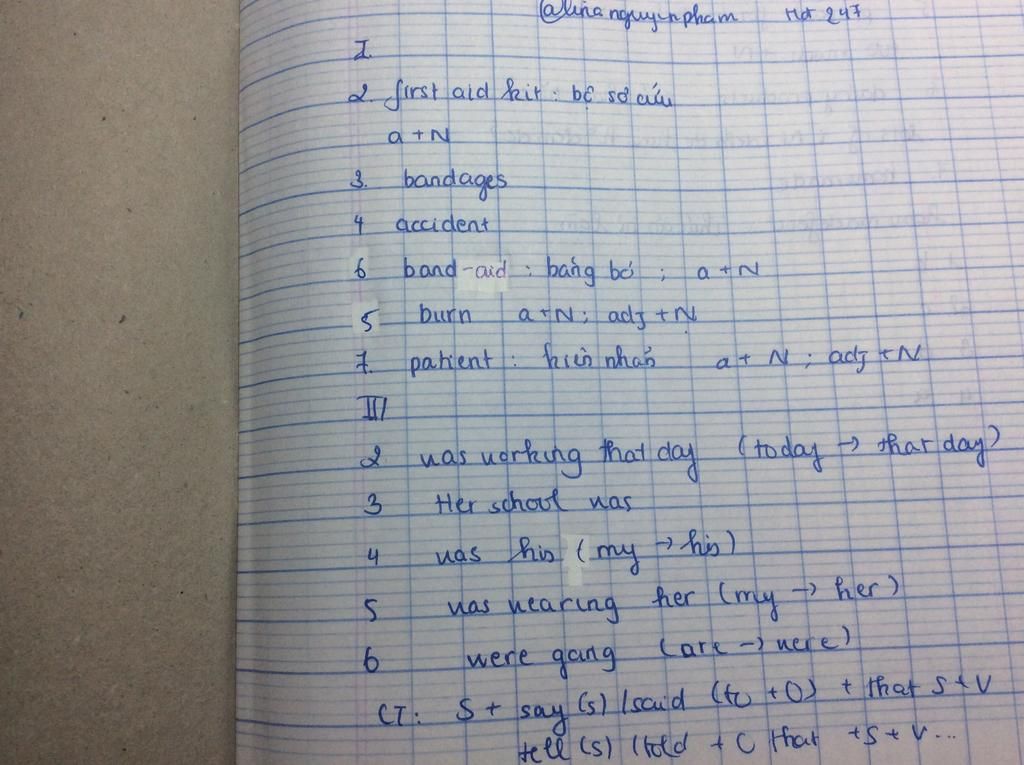 @linanguyenpham Hdt 247
I
2. first aid kit : bộ sơ cứu
a + N
3. bandages
4 accident
6 band-aid : băng bó ; a + N
5 burn a + N ; adj + N
7. patient : kiên nhẫn a + N ; adj + N
III
2 was working that day (today → that day)
3 Her school was
4 was his (my → his)
5 was wearing her (my → her)
6 were gang (are → were)
CT: S + say (s) / said (to + O) + that S + V
tell (s) (told + O that + S + V ...